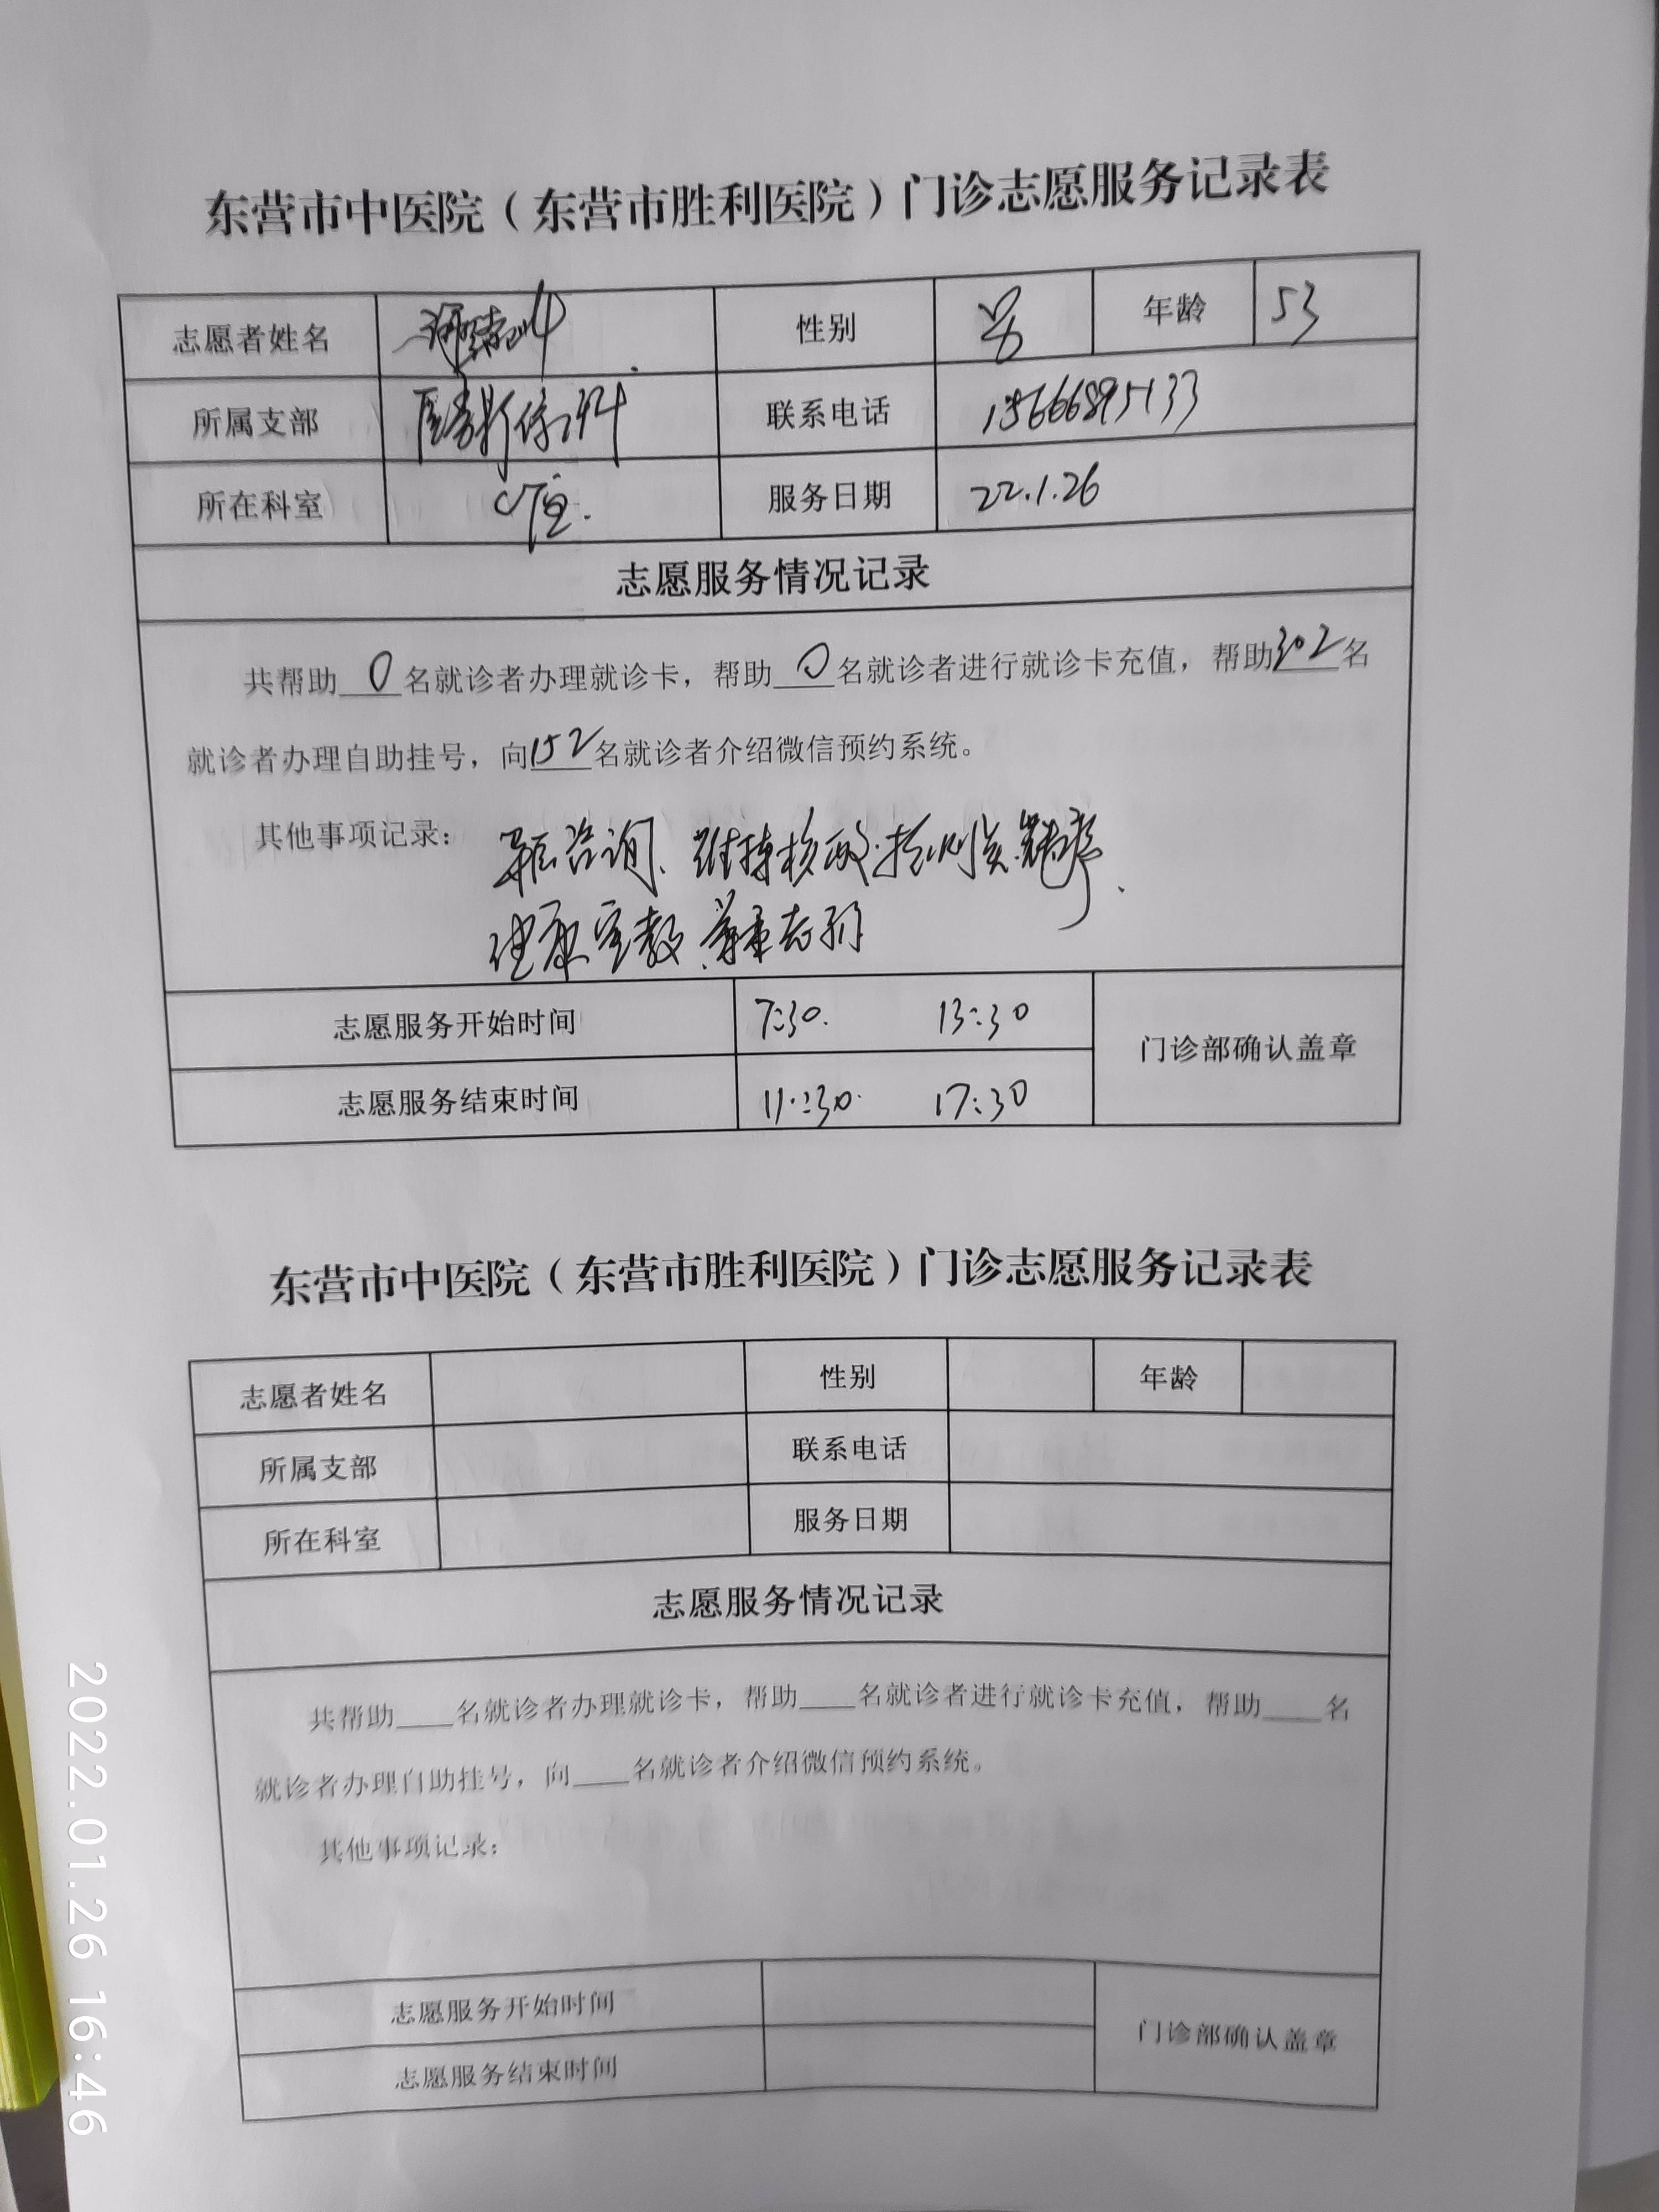 东营市中医院（东营市胜利医院）门诊志愿服务记录表
志愿者姓名 性别 男 年龄 53
所属支部 医学影像科 联系电话 15666895133
所在科室 CT室. 服务日期 22.1.26
志愿服务情况记录
共帮助0名就诊者办理就诊卡，帮助0名就诊者进行就诊卡充值，帮助302名
就诊者办理自助挂号，向152名就诊者介绍微信预约系统。
其他事项记录： 导医咨询、维持核酸检测 秩序、
健康宣教、
志愿服务开始时间 7:30. 13:30 门诊部确认盖章
志愿服务结束时间 11:30. 17:30
东营市中医院（东营市胜利医院）门诊志愿服务记录表
志愿者姓名 性别 年龄
所属支部 联系电话
所在科室 服务日期
志愿服务情况记录
共帮助____名就诊者办理就诊卡，帮助____名就诊者进行就诊卡充值，帮助____名
就诊者办理自助挂号，向____名就诊者介绍微信预约系统。
其他事项记录：
志愿服务开始时间 门诊部确认盖章
志愿服务结束时间
2022.01.26 16:46